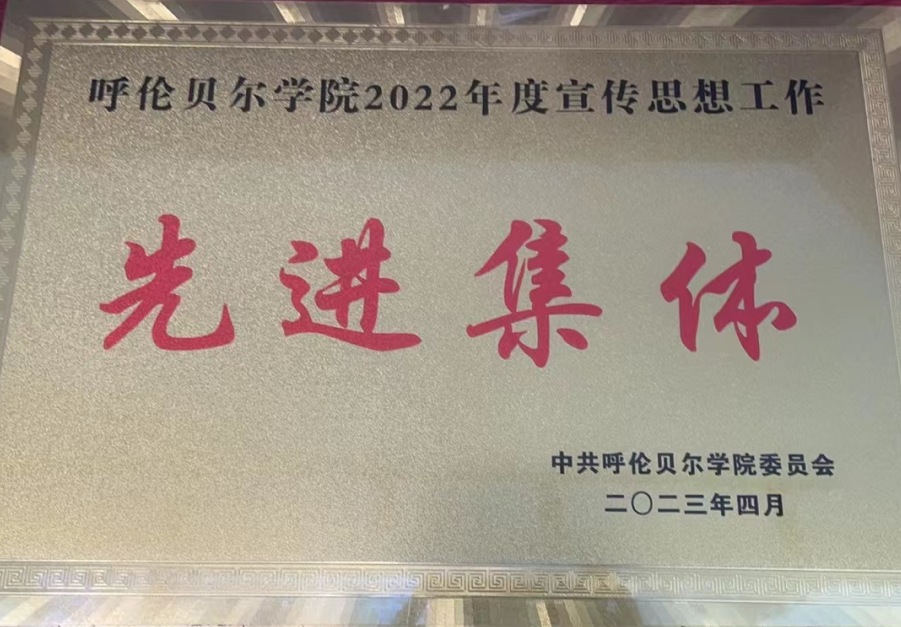 呼伦贝尔学院2022年度宣传思想工作
先进集体
中共呼伦贝尔学院委员会
二〇二三年四月